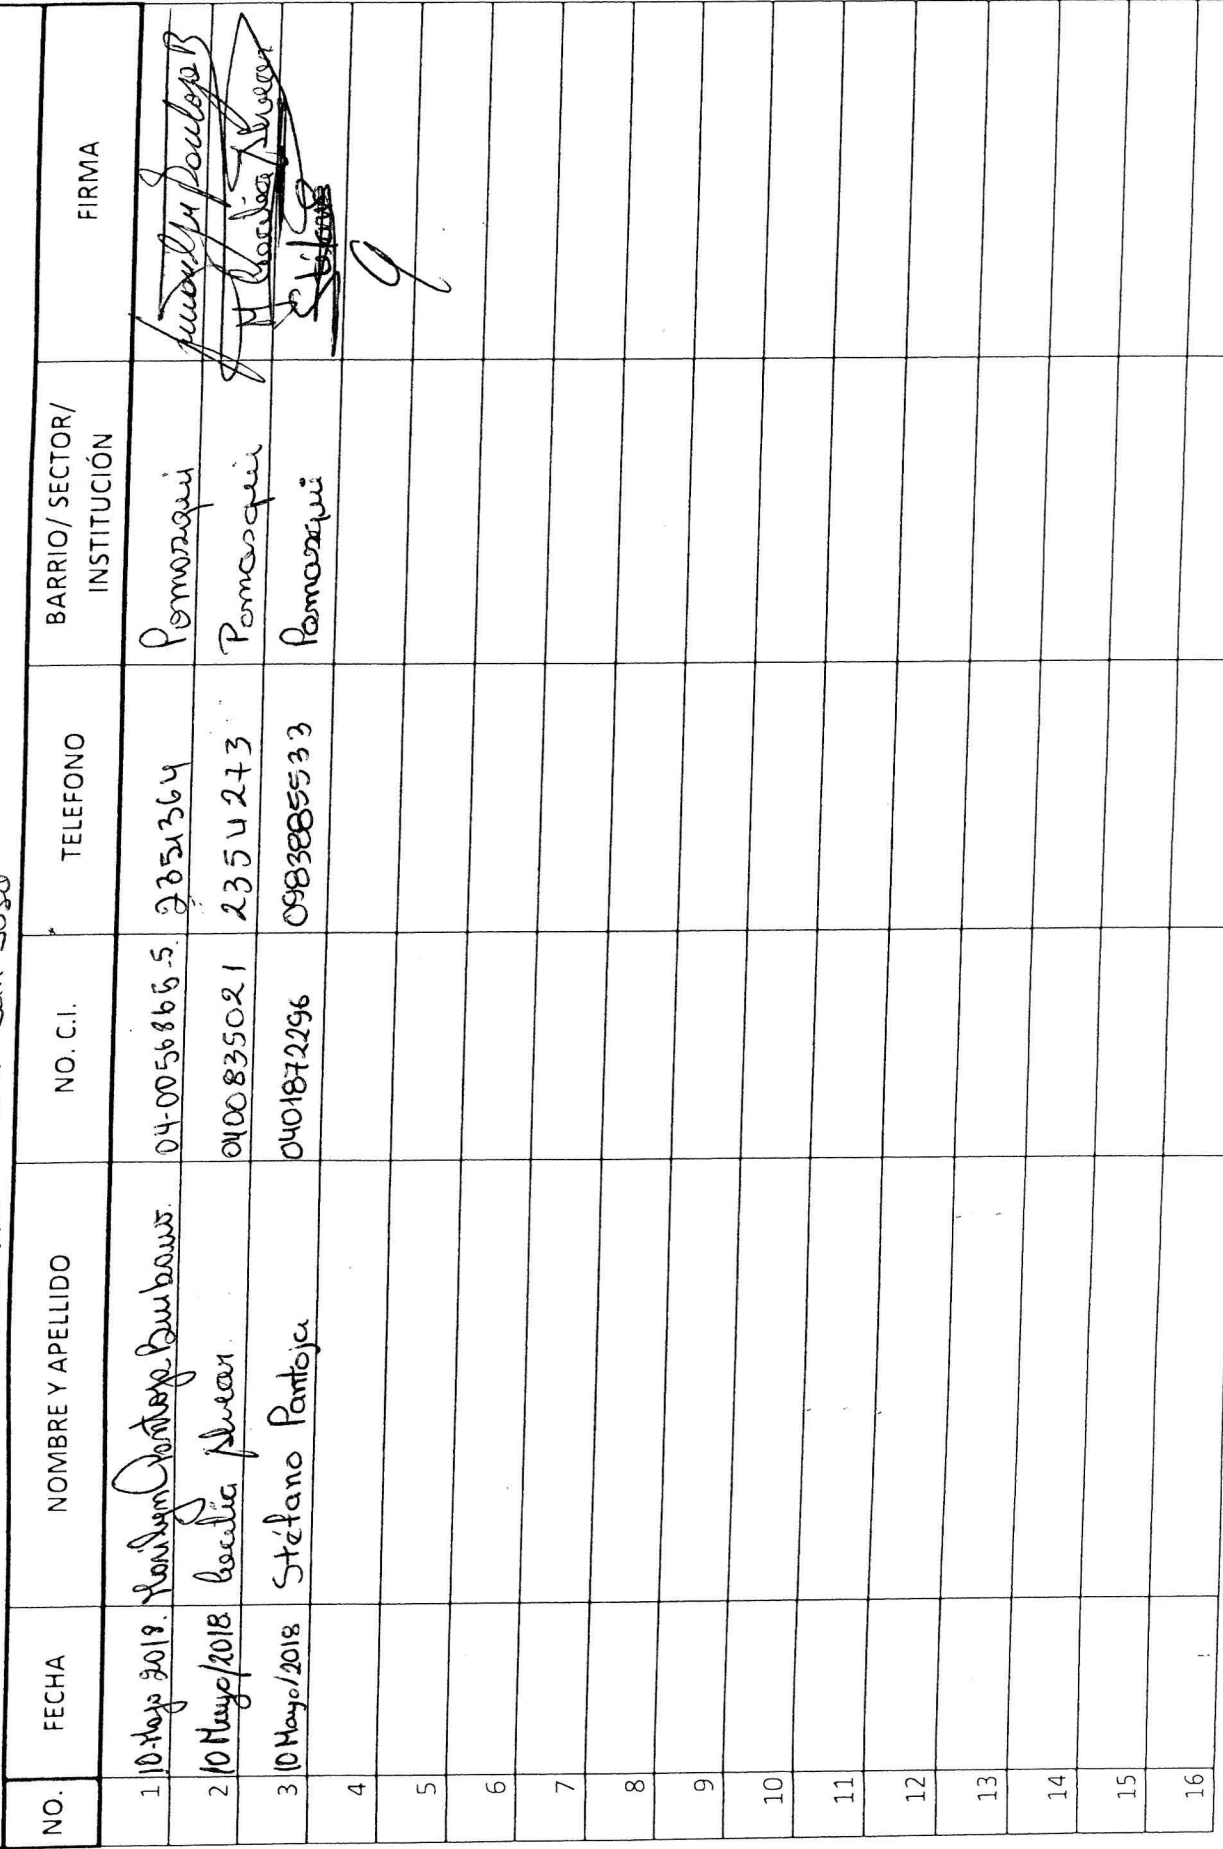 NO. FECHA NOMBRE Y APELLIDO NO. C.I. TELEFONO BARRIO/ SECTOR/ INSTITUCIÓN FIRMA
1 10-Mayo 2018. Pantoja 04-0056865-5. 2351364 Pomasqui
2 10 Mayo/2018 Cecilia 0400835021 2354273 Pomasqui M Cecilia
3 10 Mayo/2018 Stéfano Pantoja 0401872296 0983885533 Pomasqui Stéfano
4
5
6
7
8
9
10
11
12
13
14
15
16